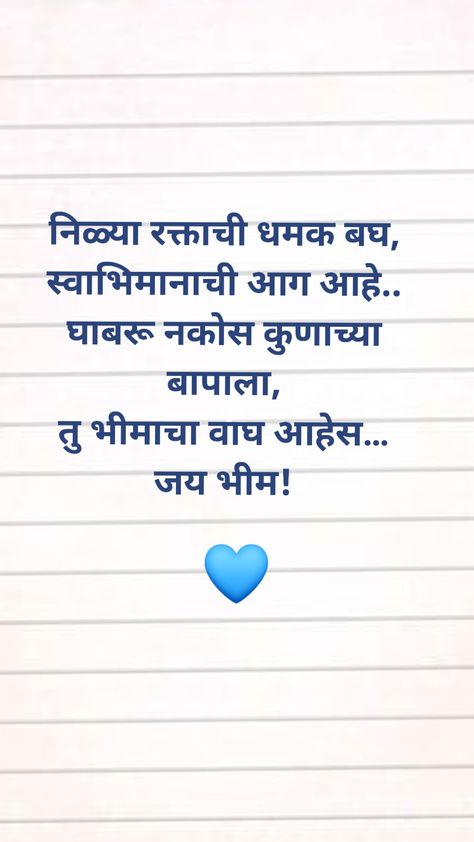 निळ्या रक्ताची धमक बघ,
स्वाभिमानाची आग आहे..
घाबरू नकोस कुणाच्या
बापाला,
तु भीमाचा वाघ आहेस...
जय भीम!